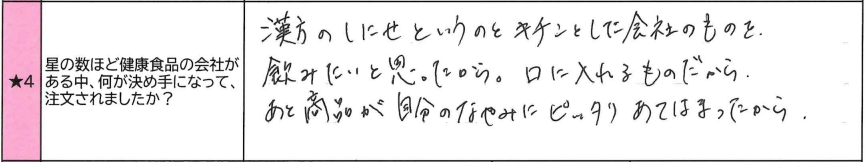 ★4
星の数ほど健康食品の会社が
ある中、何が決め手になって、
注文されましたか？
漢方のしにせというのとキチンとした会社のものを、
飲みたいと思ったから。口に入れるものだから、
あと商品が自分のなやみにピッタリあてはまったから。